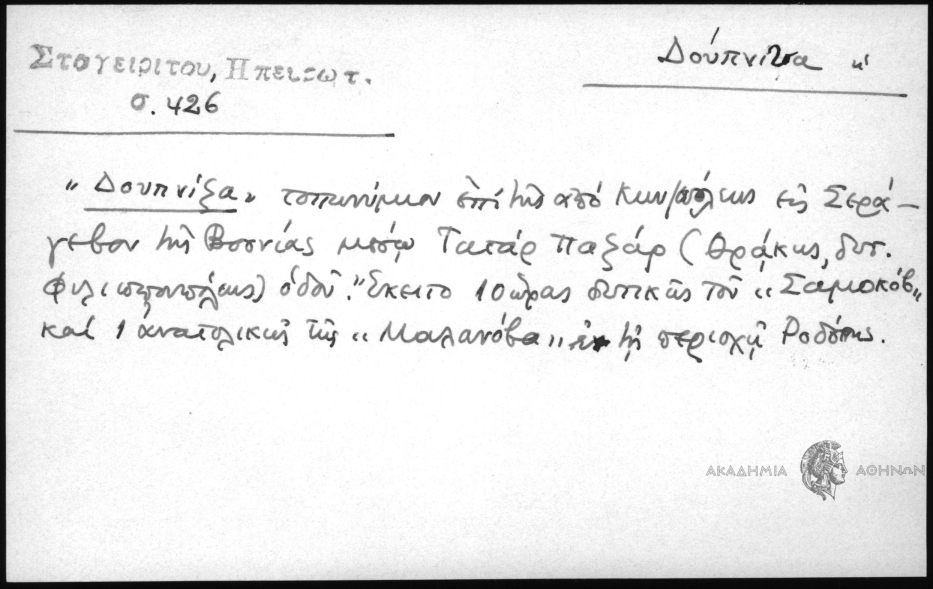 Σταγειρίτου, Ηπειρωτ.
σ. 426
Δούπνιτσα
"Δουπνίξα" τοπωνύμιον ἐπί τῆς ἀπό Κων/πόλεως εἰς Σερά-
γεβον τῆς Βοσνίας μέσῳ Τατάρ Παζάρ (Θράκης, δυτ.
Φιλιππουπόλεως) ὁδοῦ. Ἔκειτο 10 ὥρας δυτικῶς τοῦ "Σαμοκόβ"
καί 1 ἀνατολικῶς τῆς "Μαλανόβα" ἐν τῇ περιοχῇ Ροδόπης.
ΑΚΑΔΗΜΙΑ ΑΘΗΝΩΝ